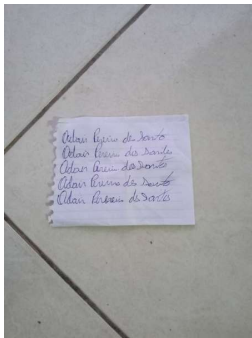 Odair Pereira dos Santos
Odair Pereira dos Santos
Odair Pereira dos Santos
Odair Pereira dos Santos
Odair Pereira dos Santos